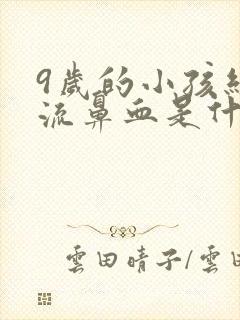 9歲的小孩經
流鼻血是什
雲田晴子/雲田